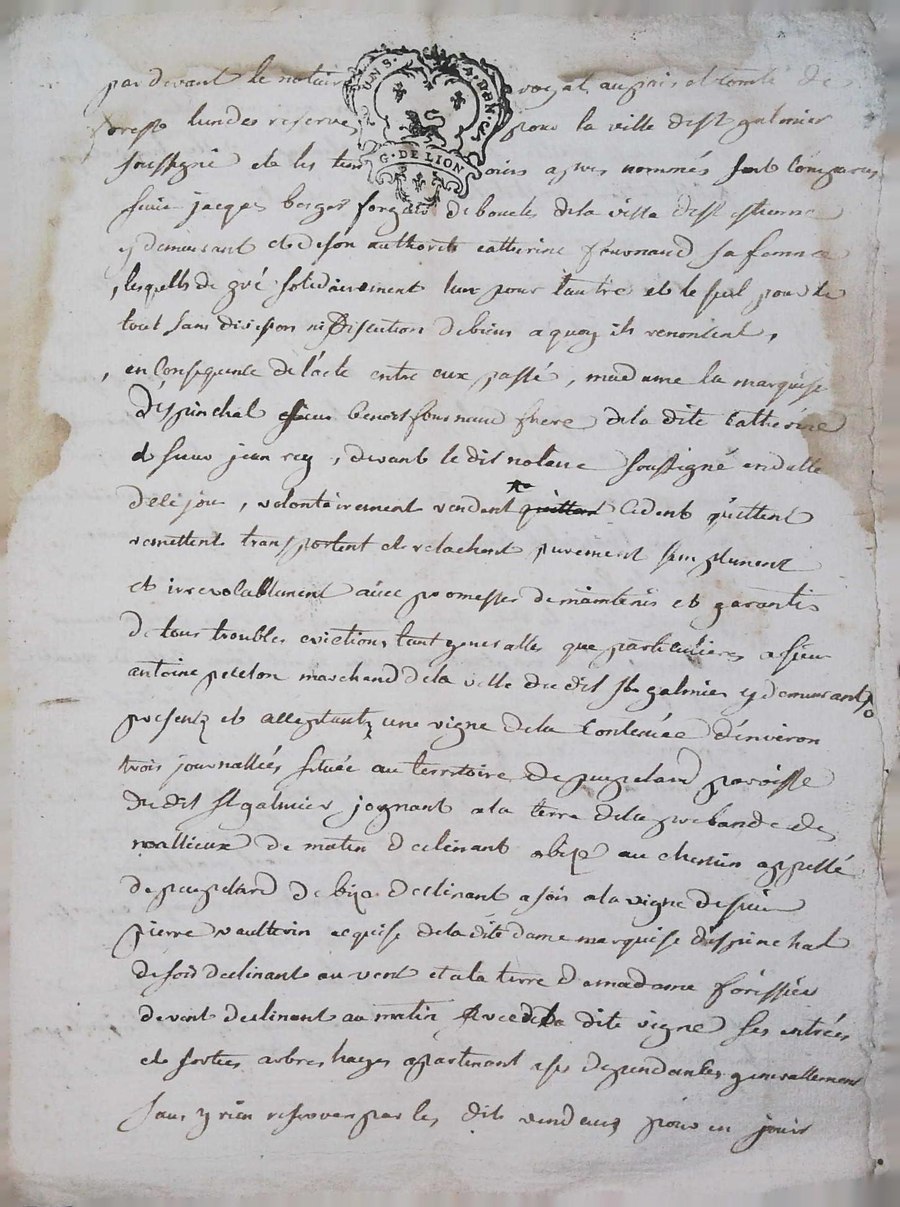 UN S. 4 DEN.
G. DE LION
pardevant le notaire royal au païs et comté de
forest lundes reservé pour la ville de st galmier
soussigné et les temoins apres nommés sont comparus
sieur jacques berger forgeur de boucles de la ville de st etienne
y demeurant et de son authorité catherine fournaud sa femme
lesquells de gré solidairement lun pour lautre et le seul pour le
tout sans division ni discution de biens a quoy ils renoncent,
en consequence de lacte entre eux passé, madame la marquise
despinchal sieur benoist fournaud frere de la dite catherine
et sieur jean rey, devant le dit notaire soussigné en datte
de ce jour, volontairement vendent cedent quittent
remettent transportent et relachent purement simplement
et irrevocablement avec promesse de maintenir et garantir
de tous troubles evictions tant generalles que particulieres a sieur
antoine peleton marchand de la ville du dit st galmier y demeurant
present et acceptant une vigne de la contenüe d'environ
trois journallées située au territoire de puypelard paroisse
du dit st galmier joignant a la terre de la prebande des
noallieux de matin declinant a bize au chemin appellé
de puypelard de bize declinant a soir a la vigne de sieur
pierre vaultrin acquise de la dite dame marquise despinchal
de soir declinant au vent et a la terre de madame forissier
de vent declinant au matin avec de la dite vigne ses entrées
et sorties arbres hayes apartenant ses dependances generallement
sans y rien reserver par les dits vendeurs pour en jouir